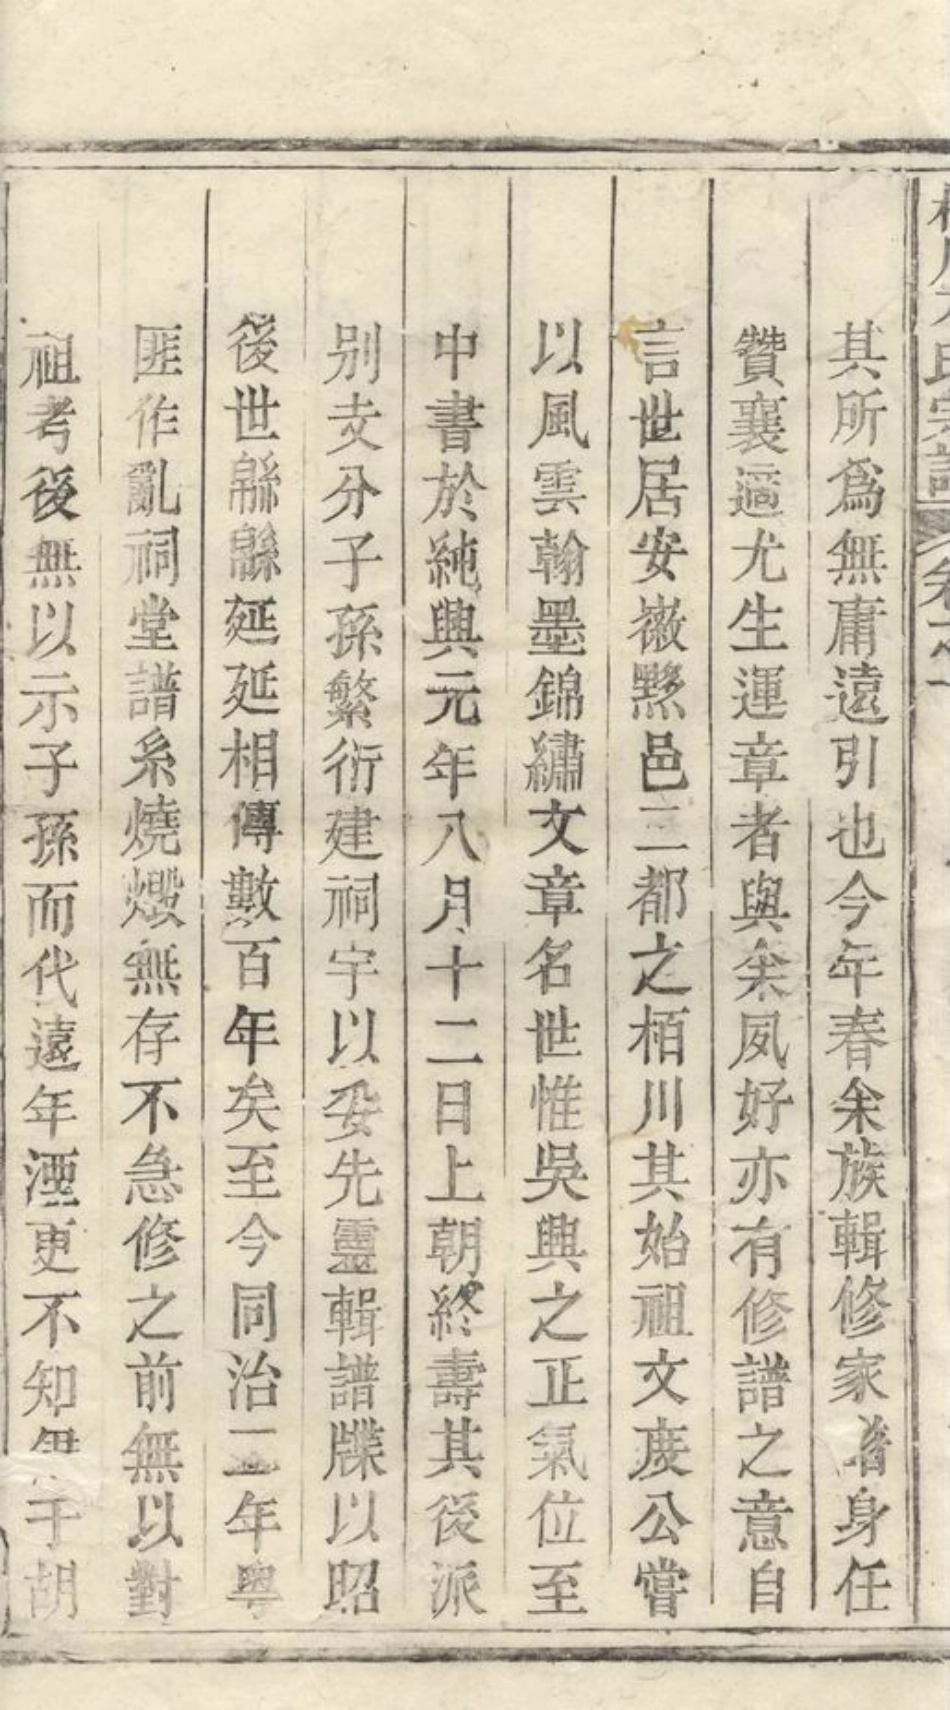 氏宗譜 卷之一
其所爲無庸遠引也今年春余族輯修家身任
贊襄適尤生運章者與余夙好亦有修譜之意自
言世居安徽黟邑二都之栢川其始祖文度公嘗
以風雲翰墨錦繡文章名世惟吳興之正氣位至
中書於純興元年八月十二日上朝終壽其後派
别支分子孫繁衍建祠宇以妥先靈輯譜牒以昭
後世緜緜延延相傳數百年矣至今同治年粤
匪作亂祠堂譜系燒燬無存不急修之前無以對
祖考後無以示子孫而代遠年湮更不知伊于胡